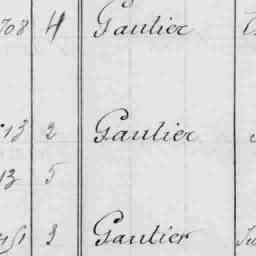 708 4 Gautier
13 2 Gautier
13 5
2 Gautier